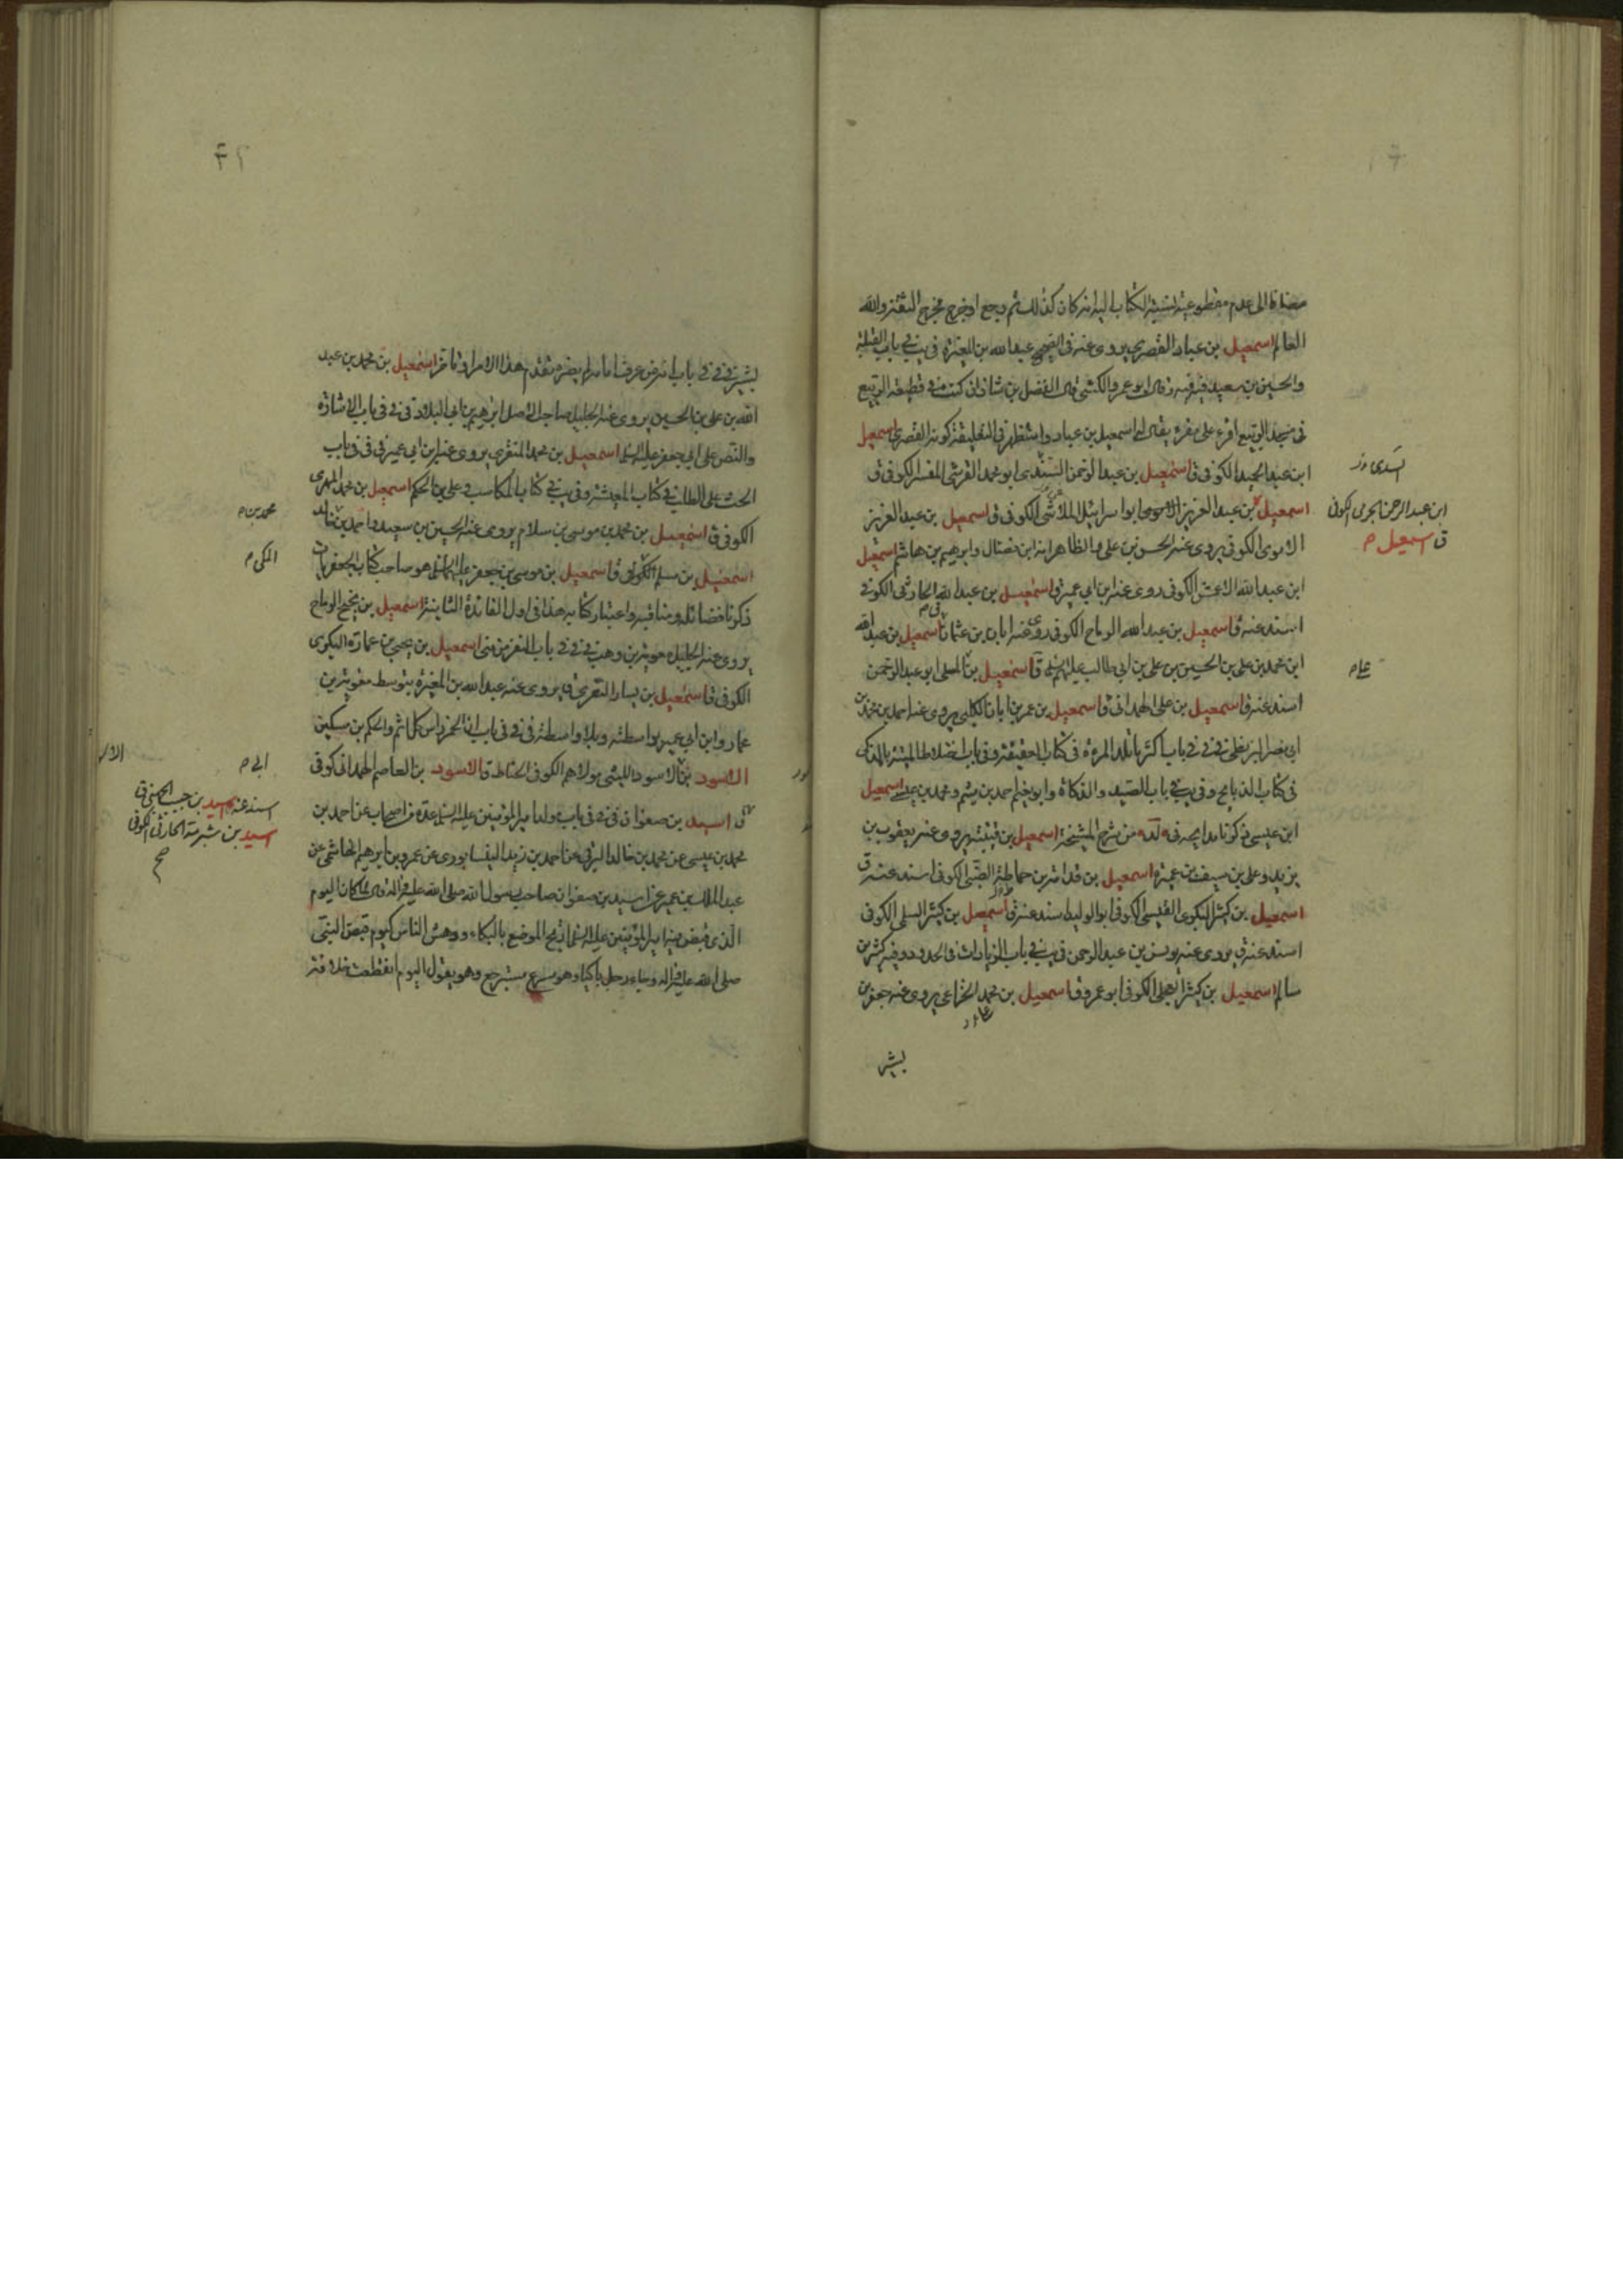 مضافا الى عدم مقطوعية نسبة الكتاب اليه انه كان كذلك ثم رجع او خرج مخرج التقية والله
العالم اسمعيل بن عباد القصري يروي عنه في الصحيح عبد الله بن المغيرة في يب في باب القبلة
والحسين بن سعيد فيه وفيه قال ابو عمرو الكشي قال الفضل بن شاذان كنت في قطيعة الربيع
في مسجد الربيع اقرء على مقرء يقال له اسمعيل بن عباد واستظهر في التعليقة كونه القصري اسمعيل
ابن عبد الحميد الكوفي ق اسمعيل بن عبد الرحمن السدي ابو محمد القرشي المفسر الكوفي ق
اسمعيل بن عبد العزيز ابو اسرائيل الملائي الكوفي ق اسمعيل بن عبد العزيز
الاموي الكوفي يروي عنه الحسن بن علي والظاهر انه ابن فضال وابرهيم بن هاشم اسمعيل
ابن عبد الله الاعمش الكوفي روى عنه ابن ابي عمير ق اسمعيل بن عبد الله الحارثي الكوفي
اسند عنه ق اسمعيل بن عبد الله الرماح الكوفي روى عنه ابان بن عثمان ق اسمعيل بن عبد الله
ابن محمد بن علي بن الحسين بن علي بن ابي طالب عليهم السلام ق اسمعيل بن ابو عبد الرحمن
اسند عنه ق اسمعيل بن علي الهمداني ق اسمعيل بن عمر بن ابان الكلبي يروي عنه احمد بن محمد بن
ابي نصر البزنطي في باب اكثر ما تلد المرءة في كتاب العقيقة وفي باب اختلاط الميتة بالمذكى
في كتاب الذبايح وفي يب في باب الصيد والذكاة وابو خيثم احمد بن ميثم ومحمد بن اسمعيل
ابن عيسى ذكرنا مدايحه في له من شرح المشيخة اسمعيل بن قتيبة يروي عنه يعقوب بن
يزيد وعلي بن سيف بن عميرة اسمعيل بن قدامة بن حماطة الضبي الكوفي اسند عنه ق
اسمعيل بن كثير البكري القيسي الكوفي ابو الوليد اسند عنه ق اسمعيل بن كثير السلمي الكوفي
اسند عنه ق يروي عنه يونس بن عبد الرحمن في يب في باب الزيادات في الحدود وفيه كثير بن
سالم اسمعيل بن كثير العجلي الكوفي ابو عمرو ق اسمعيل بن محمد الخزاعي يروي عنه جعفر بن
بشير
السدي
ابن عبد الرحمن الجرمي الكوفي
ق اسمعيل م
بشير في في في باب انه من عرف امامه لم يضره تقدم هذا الامر او تاخر اسمعيل بن محمد بن عبد
الله بن علي بن الحسين يروي عنه الجليل صاحب الاصل ابرهيم بن ابي البلاد في في باب الاشارة
والنص على ابي جعفر عليه السلام اسمعيل بن محمد المنقري يروي عنه ابن ابي عمير في في باب
الحث على الطلب في كتاب المعيشة وفي يب في كتاب المكاسب وعلي بن الحكم اسمعيل بن محمد المهري
الكوفي ق اسمعيل بن محمد بن موسى بن سلام يروي عنه الحسين بن سعيد واحمد بن
اسمعيل بن مسلم الكوفي ق اسمعيل بن موسى بن جعفر عليهما السلام هو صاحب كتاب الجعفريات
ذكرنا فضائله ومناقبه واعتبار كتابه هذا في اول الفائدة الثانية اسمعيل بن نجيح الرماح
يروي عنه الجليل معوية بن وهب في في باب النفر من منى اسمعيل بن يحيى بن عمارة البكري
الكوفي ق اسمعيل بن يسار البصري ق يروي عنه عبد الله بن المغيرة بتوسط معوية بن
عمار وابن ابي عمير بواسطة وبلا واسطة في في باب ان الخمر راس كل اثم والحكم بن مسكين
الاسود بن الاسود الليثي مولاهم الكوفي الحناط ق الاسود بن العاصم الهمداني كوفي
ق اسيد بن صفوان في في باب ولد امير المؤمنين عليه السلام عدة من اصحابنا عن احمد بن
محمد بن عيسى عن محمد بن خالد البرقي عن احمد بن زيد النيسابوري عن عمرو بن ابرهيم الهاشمي عن
عبد الملك بن عمير عن اسيد بن صفوان صاحب رسول الله صلى الله عليه واله قال لما كان اليوم
الذي قبض فيه امير المؤمنين عليه السلام ارتج الموضع بالبكاء ودهش الناس كيوم قبض النبي
صلى الله عليه واله وجاء رجل باكيا وهو مسرع مسترجع وهو يقول اليوم انقطعت خلافة
محمد بن م
المكي م
ابي م
اسند عنه اسيد بن حبيب الجهني ق
اسيد بن شبرمة الحارثي الكوفي
صح